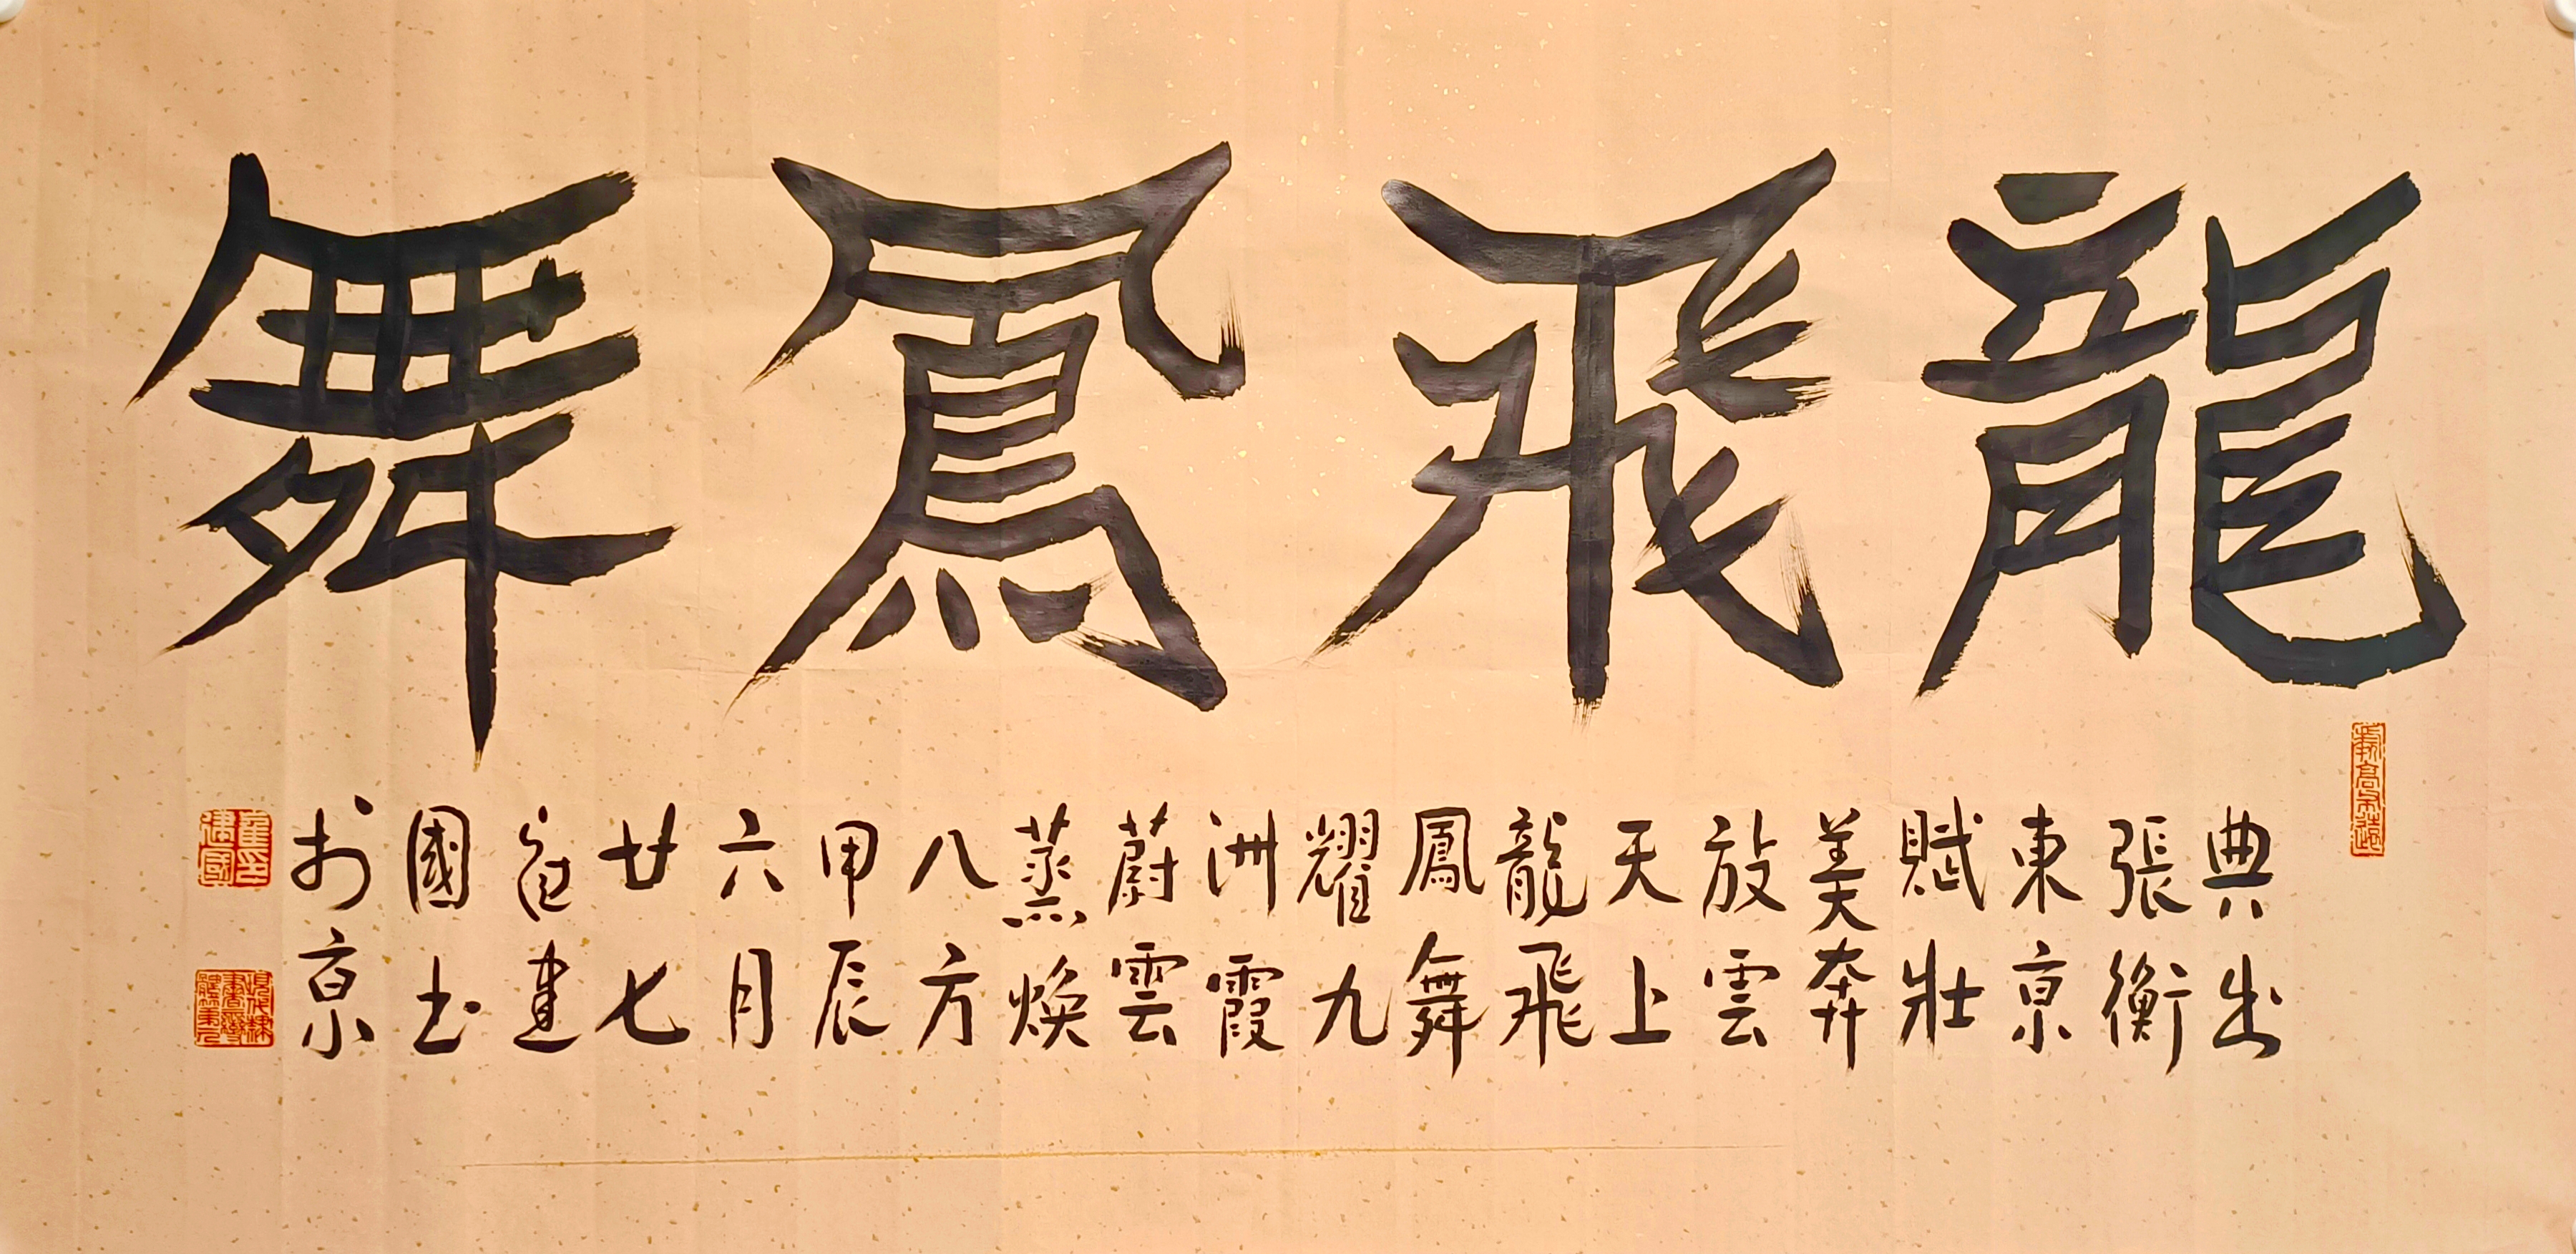 龍飛鳳舞
典出
張衡
東京
賦壯
美奔
放雲
天上
龍飛
鳳舞
耀九
洲霞
蔚雲
蒸煥
八方
甲辰
六月
廿七
建
國书
於京
崔建國印